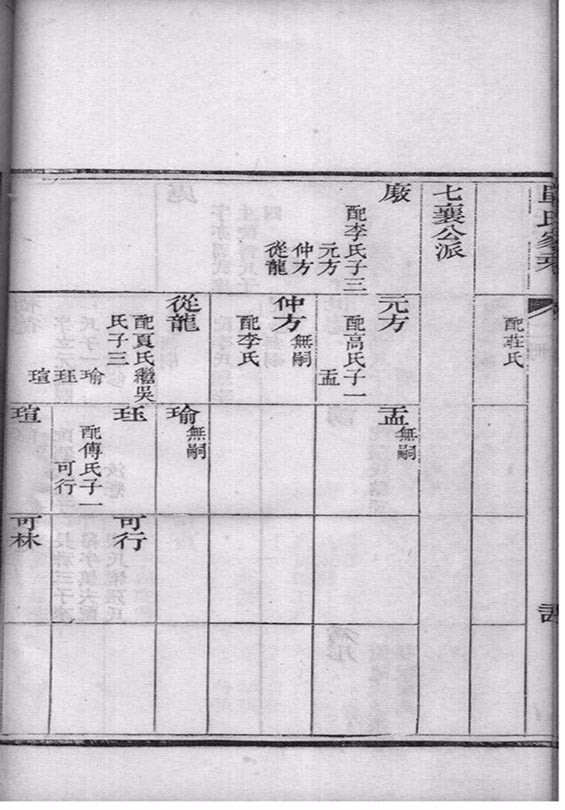 配莊氏
七襄公派
廒
配李氏子三
元方
仲方
從龍
元方
配高氏子一
孟
仲方
無嗣
配李氏
從龍
配夏氏繼吳
氏子三
瑜
珏
瑄
孟
無嗣
瑜
無嗣
珏
配傅氏子一
可行
瑄
可行
可林